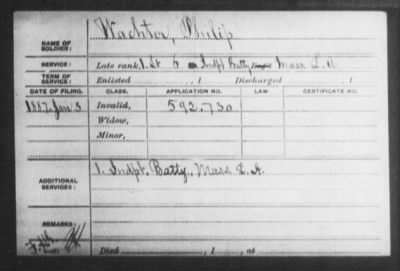 Wachter, Philip
NAME OF SOLDIER:
SERVICE: Late rank, 1. Lt 6 Indpt Batty Mass. L. A
TERM OF SERVICE: Enlisted , 1 Discharged , 1
DATE OF FILING. CLASS. APPLICATION NO. LAW. CERTIFICATE NO.
1887, Jan 3. Invalid, 592.730
Widow,
Minor,
1. Indpt. Batty. Mass. L. A.
ADDITIONAL SERVICES:
REMARKS:
Died , 1 , at